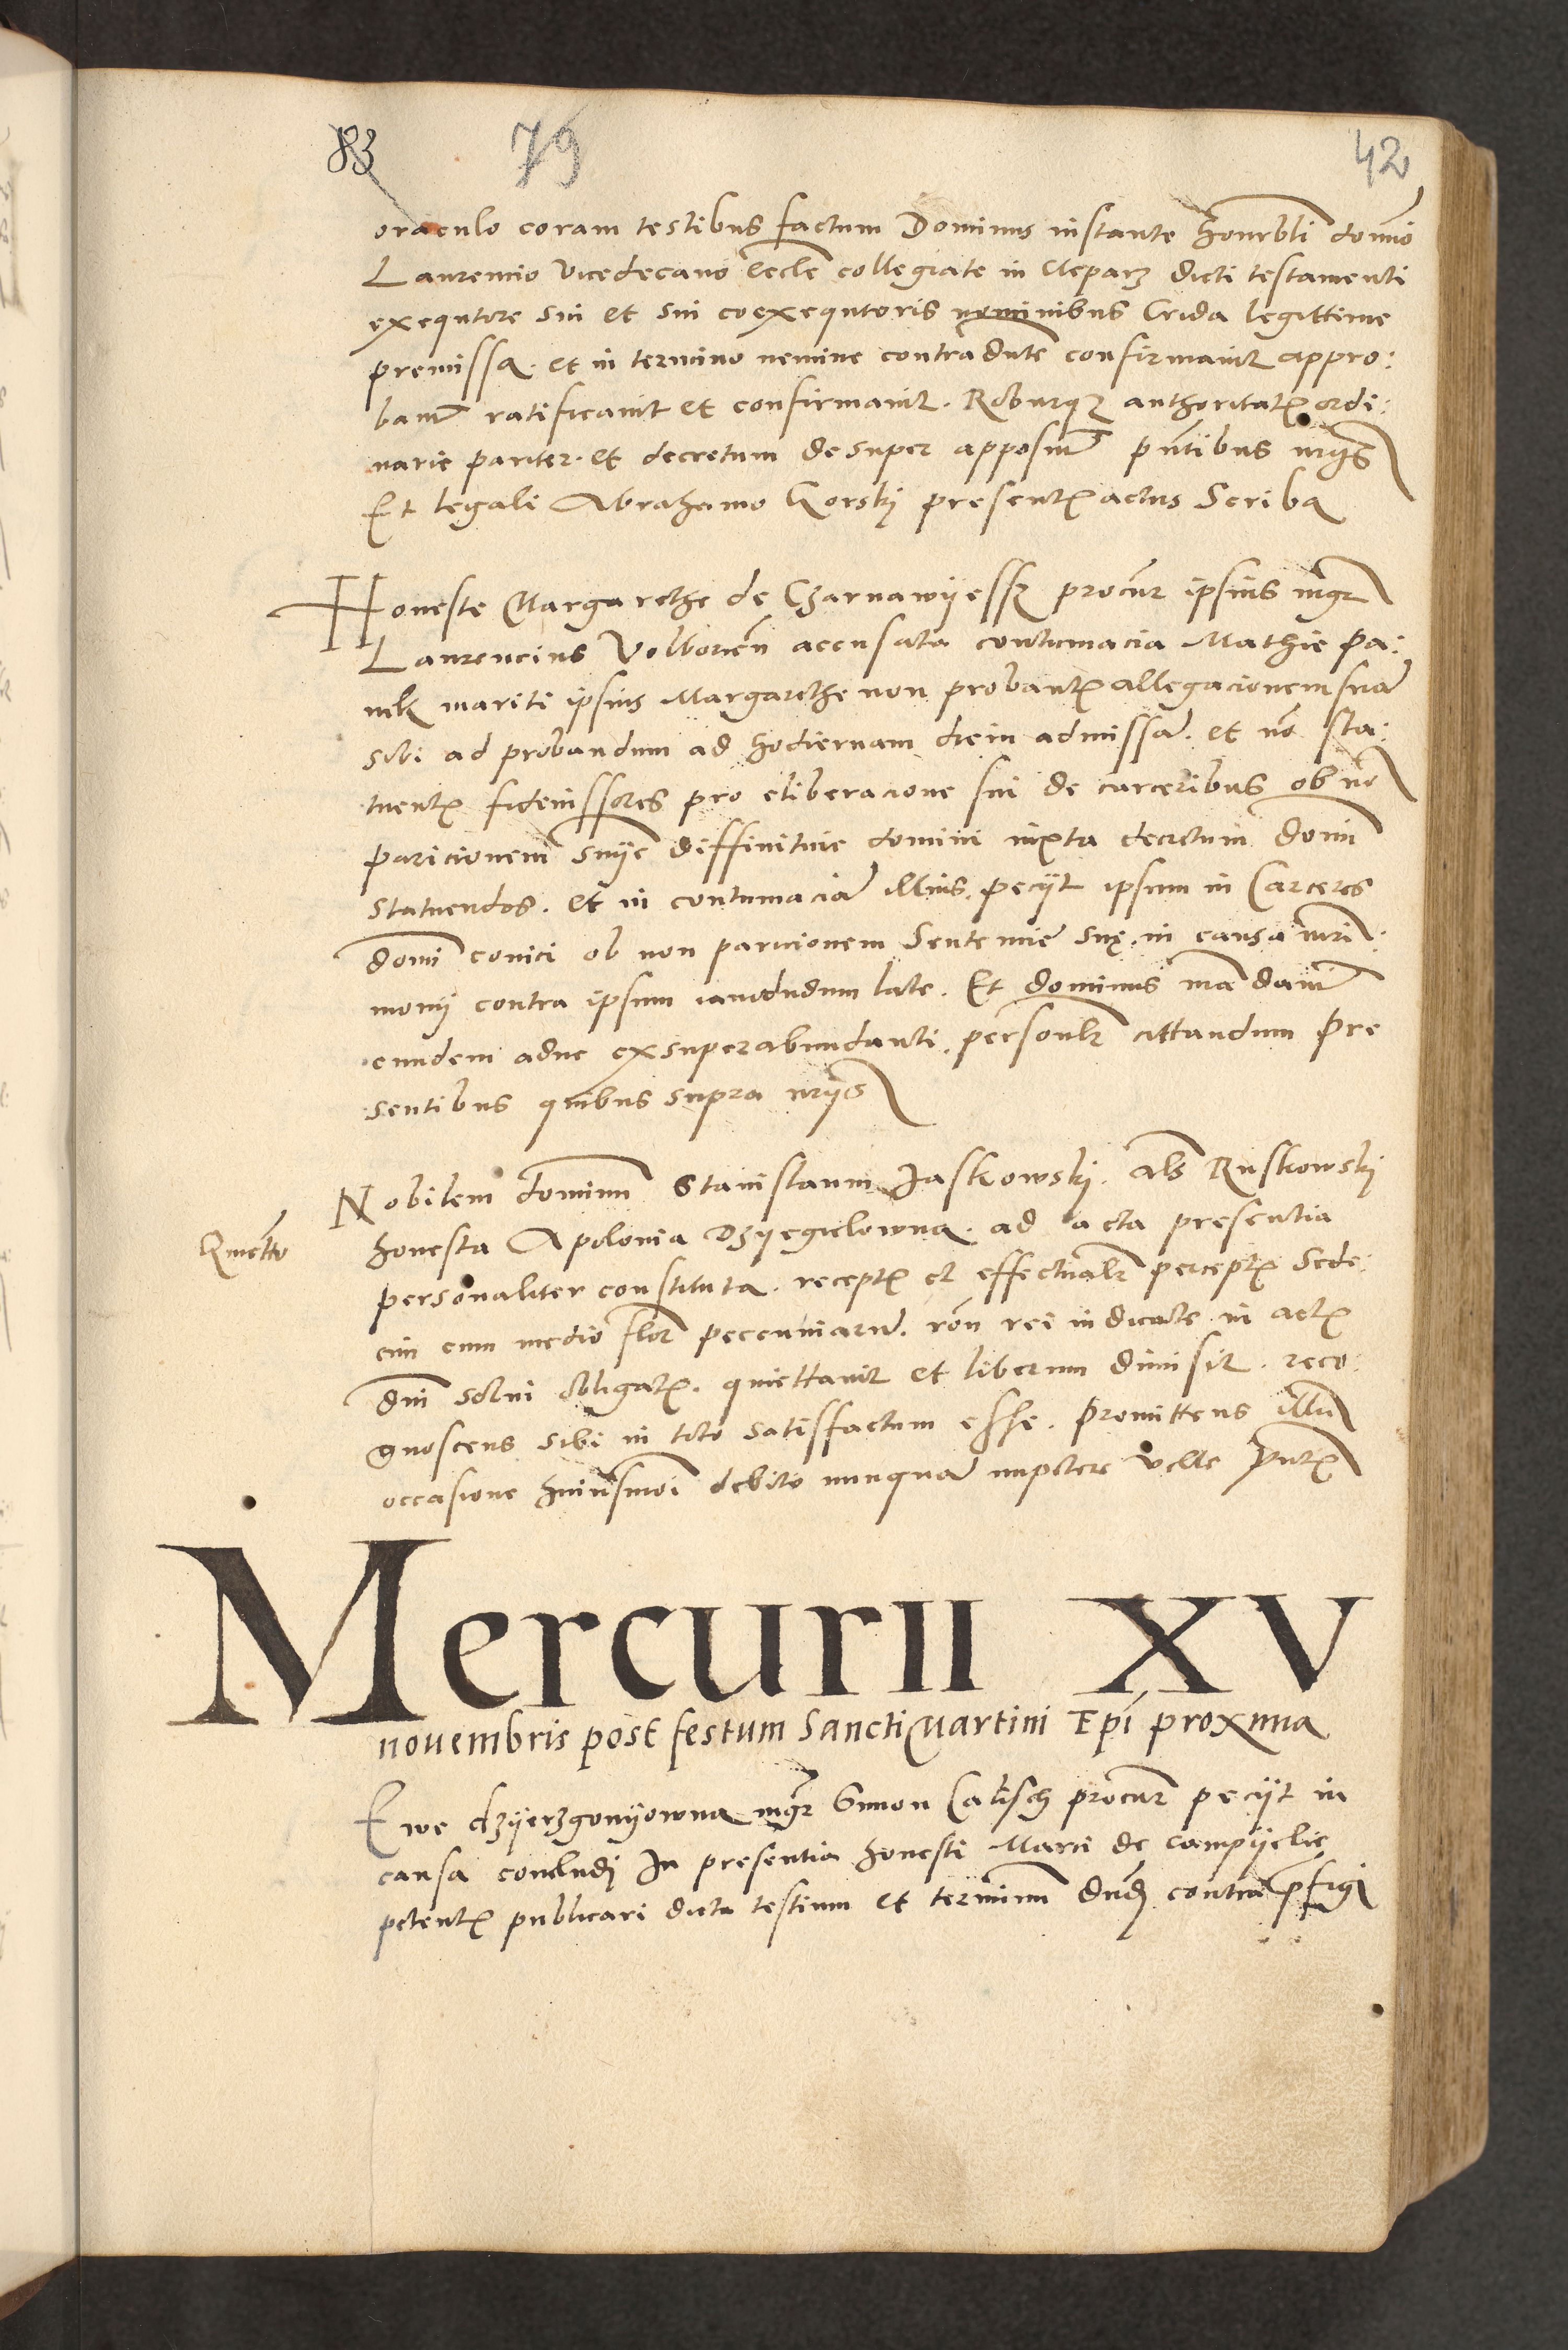 83 79 42
oraculo coram testibus factum Dominus instante honrbli domino
Laurencio Vicedecano Eccle collegiate in Cleparz dicti testamenti
exequtore sui et sui coexequtoris nominibus Crida legittime
premissa. et in termino nemine contradicte confirmavit appro:
bavit ratificavit et confirmavit. Roburqz authoritatis ordi:
narie pariter. et decretum desuper apposuit pntibus
Et legali Abrahamo Gorski presentis actus Scriba
Honeste Margarethe de Czarnawyessz procur ipsius mgr
Laurencius Volborien accusata contumacia Mathie Pa:
mariti ipsius Margarethe non probantis allegacionem sua
sibi ad probandum ad hodiernam diem admissa. et no sta:
tuentis fideiussores pro eliberacione sui de carceribus ob no
paricionem snye diffinitive domini iuxta decretum domi
statuendos. et in contumacia illius. peciit ipsum in Carceres
domi coniici ob non paricionem Sentencie suę. in causa mri:
monij contra ipsum iamdudum late. Et dominus mandavit
eundem aduc exsuperabundanti. personlr cittandum Pre
sentibus quibus supra
Nobilem dominum Stanislaum Jaskowski. als Ruskowski
Quietto
honesta Apolonia Dzyegielowna. ad acta presentia
personaliter constituta. receptis et effectualr perceptis Sede:
cim cum medio flor peccuniaru. ron rei iudicate in actis
dni solvi obligatis. quiettavit et liberum dimisit. reco:
gnoscens sibi in toto satisfactum esse. promittens illu
occasione huiusmoi debito nunqua impetere velle pntis
Mercurii XV
novembris post festum Sancti Martini Epi proxima
Ewe dzyerzgonyowna mgr Simon Calisch procur peciit in
causa concludi In presentia honesti Marci de campiielie
petentis publicari dicta testium et terminum dnd contra pfigi